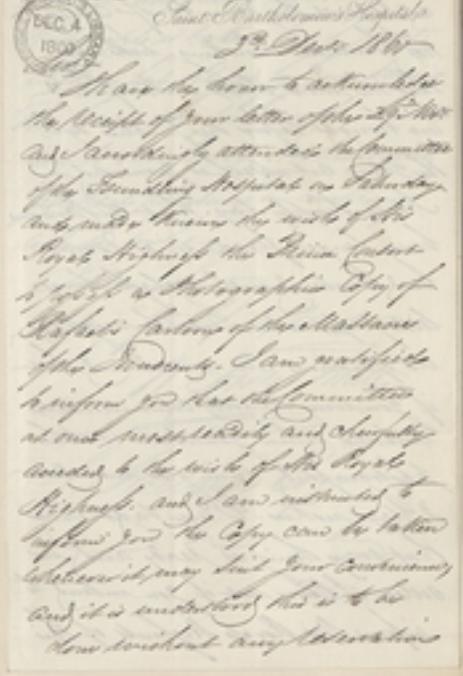 DEC. 4
1860
Saint Bartholomew's Hospital
3rd Decr 1860
Sir,
I have the honor to acknowledge
the receipt of your letter of the Novr
and I accordingly attended the Committee
of the Foundling Hospital on Saturday
and made known the wish of His
Royal Highness the Prince Consort
to possess a Photographic Copy of
Rafaels Cartoon of the Massacre
of the Innocents. I am gratified
to inform you that the Committee
at once most readily and cheerfully
acceded to the wish of His Royal
Highness. and I am instructed to
inform you the Copy can be taken
whenever it may suit your convenience,
and it is understood this is to be
done without any reservation